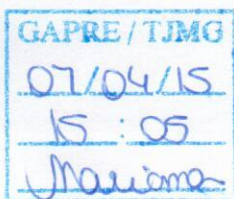 GAPRE/TJMG
07/04/15
15:05
Mariana